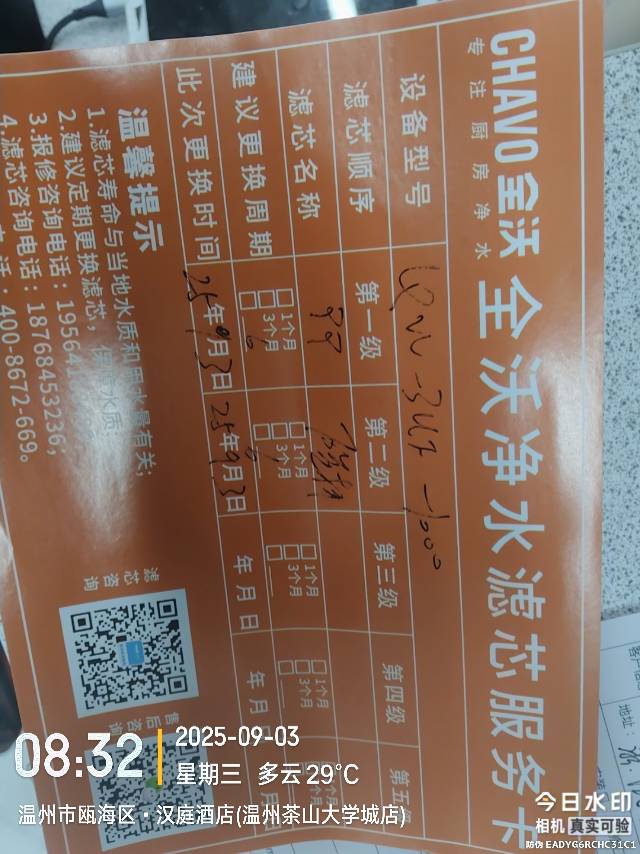 CHAVO全沃 全沃净水滤芯服务卡
专注厨房净水
设备型号
滤芯顺序 第一级 第二级 第三级 第四级 第五级
滤芯名称 PP
建议更换周期 1个月 1个月 1个月 1个月
3个月 3个月 3个月 3个月
此次更换时间 25年9月3日 25年9月3日 年月日 年月日
温馨提示
1.滤芯寿命与当地水质和用水量有关;
2.建议定期更换滤芯,
3.报修咨询电话:18768453236;
4.滤芯咨询电话:400-8672-669。
滤芯咨询
售后咨询
地址:
08:32
2025-09-03
星期三 多云 29°C
温州市瓯海区·汉庭酒店(温州茶山大学城店)
今日水印
相机 真实可验
防伪 EADYG6RCHC31C1